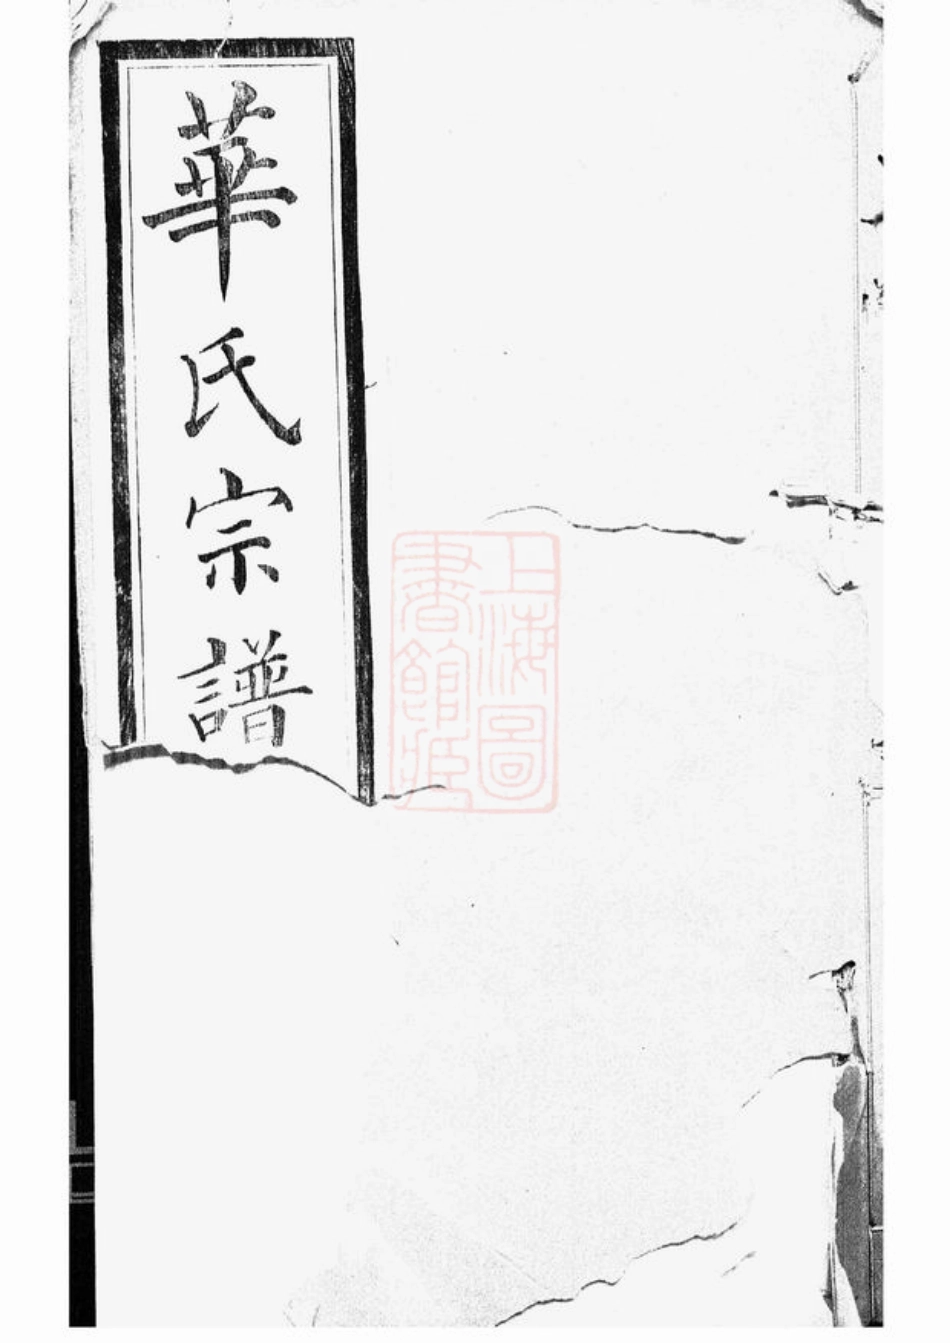 華氏宗譜
上海圖
書館藏